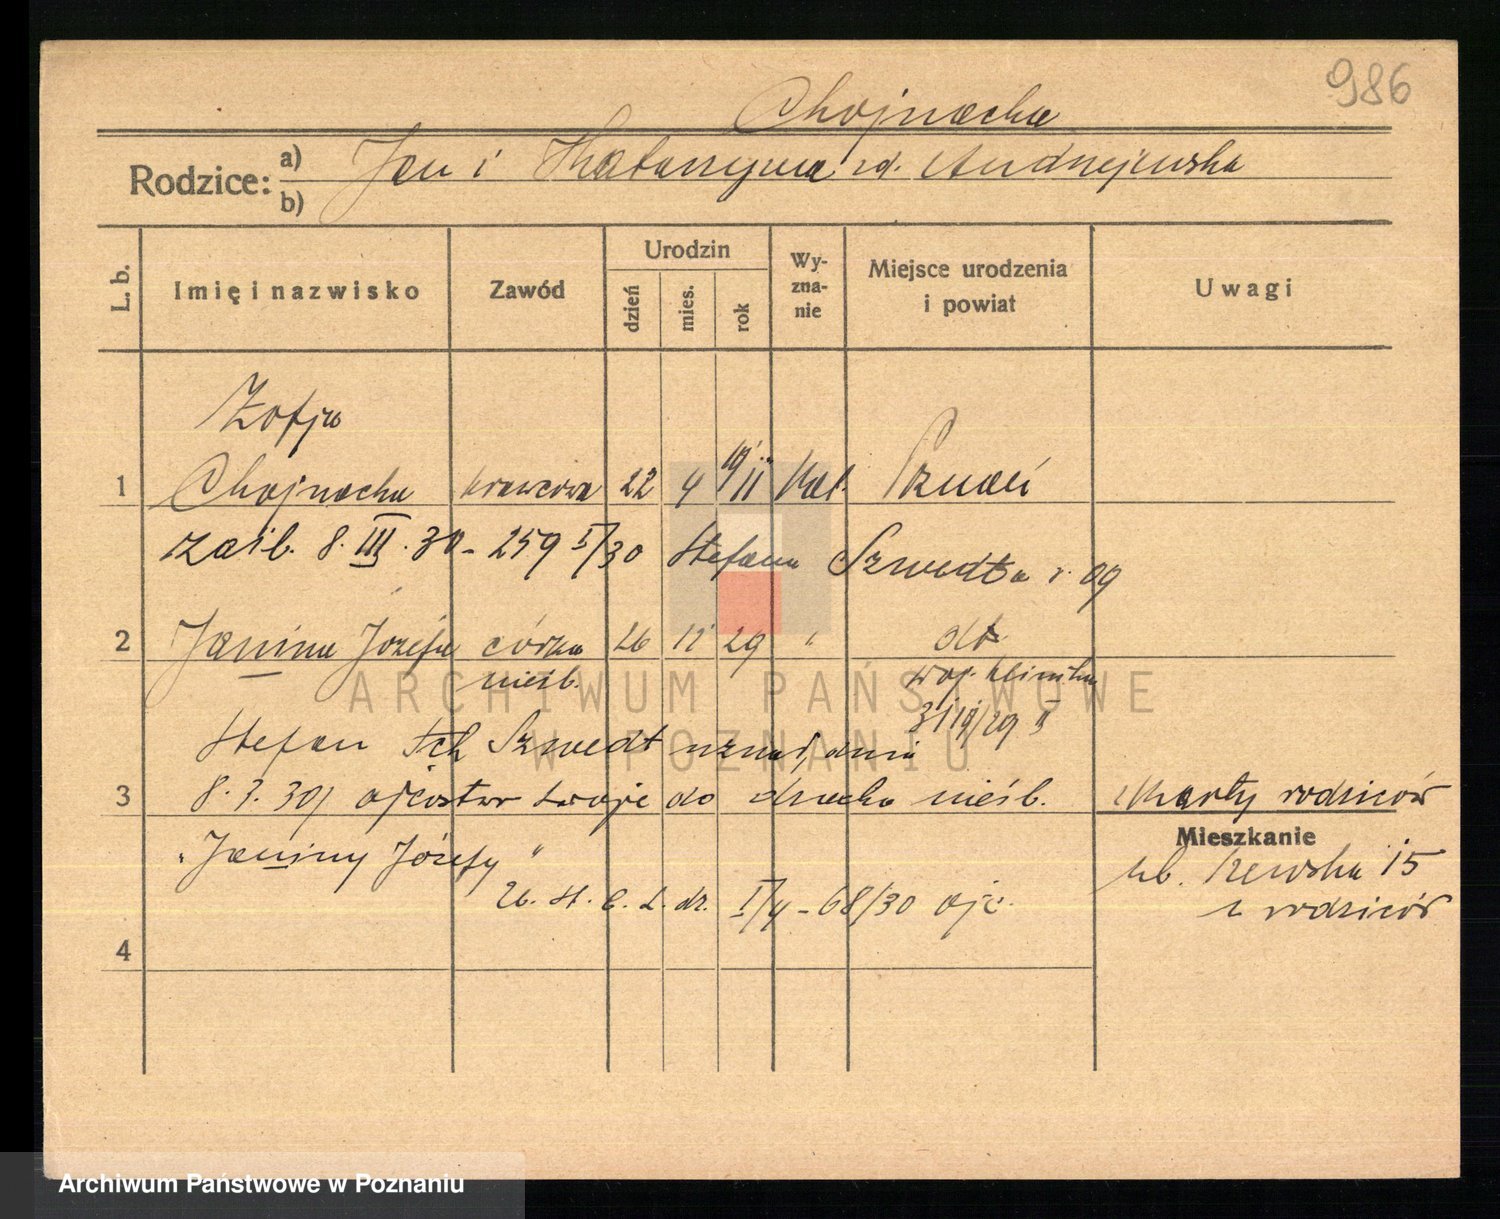 986
Chojnacka
Rodzice: a) b) Jan i Katarzyna zd. Andrzejewska
L. b. Imię i nazwisko Zawód Urodzin dzień mies. rok Wy-zna-nie Miejsce urodzenia i powiat Uwagi
Zofja
1 Chojnacka krawcowa 22 4 11 kat. Poznań
zaśl. 8. III. 30 - 259 I/30 Stefana Szwedta r. 09
2 Janina Józefa córka 26 11 29 " dt
nieśl.
31/12/29 II
Stefan Szwedt uznał, dnia
3 8. 3. 30, ojcostwo swoje do dziecka nieśl. Karty rodziców
Mieszkanie
„Janiny Józefy" 15
U. St. C. L. dz. I/4 - 68/30 ojc. z rodziców
4
ARCHIWUM PAŃSTWOWE
W POZNANIU
Archiwum Państwowe w Poznaniu